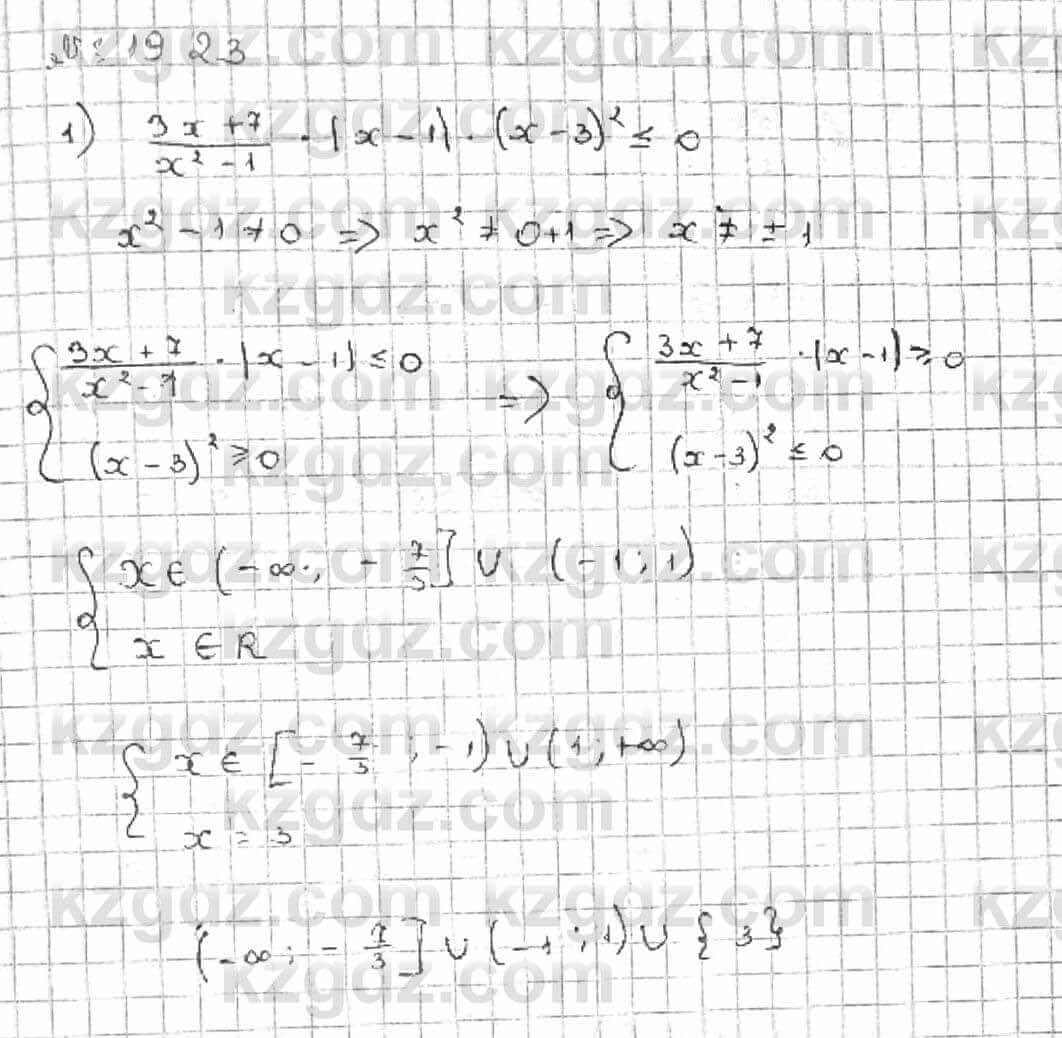 № 19 23
1) \frac{3x+7}{x² - 1} · |x - 1| · (x - 3)² ≤ 0
x² - 1 ≠ 0 => x² ≠ 0 + 1 => x ≠ ± 1
{ \frac{3x + 7}{x² - 1} · |x - 1| ≤ 0 => { \frac{3x + 7}{x² - 1} · |x - 1| ≥ 0
(x - 3)² ≥ 0 (x - 3)² ≤ 0
{ x ∈ (-∞; - \frac{7}{3}] ∪ (-1; 1)
x ∈ R
{ x ∈ [- \frac{7}{3}; -1) ∪ (1; +∞)
x = 3
(-∞; - \frac{7}{3}] ∪ (-1; 1) ∪ {3}
kzgdz.com